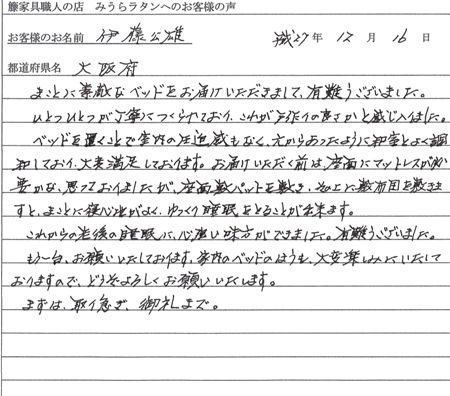 籐家具職人の店　みうらラタンへのお客様の声
お客様のお名前　伊藤公雄　　平成27年 12月 16日
都道府県名　大阪府
まことに素敵なベッドをお届けいただきまして、有難うございました。
ひとつひとつが丁寧につくられており、これが手作りの良さかと感じ入りました。
ベッドを置くことで室内の圧迫感もなく、元からあったように和室とよく調
和しており、大変満足しております。お届けいただく前は、座面にマットレスが必
要かな、思っておりましたが、座面敷パットを敷き、その上に敷布団を敷きま
すと、まことに寝心地がよく、ゆっくり睡眠をとることが出来ます。
これからの老後の睡眠に、心強い味方ができました。有難うございました。
もう一台、お願いいたしております、家内のベッドのほうも、大変楽しみにいたして
おりますので、どうぞよろしくお願いいたします。
まずは、取り急ぎ、御礼まで。